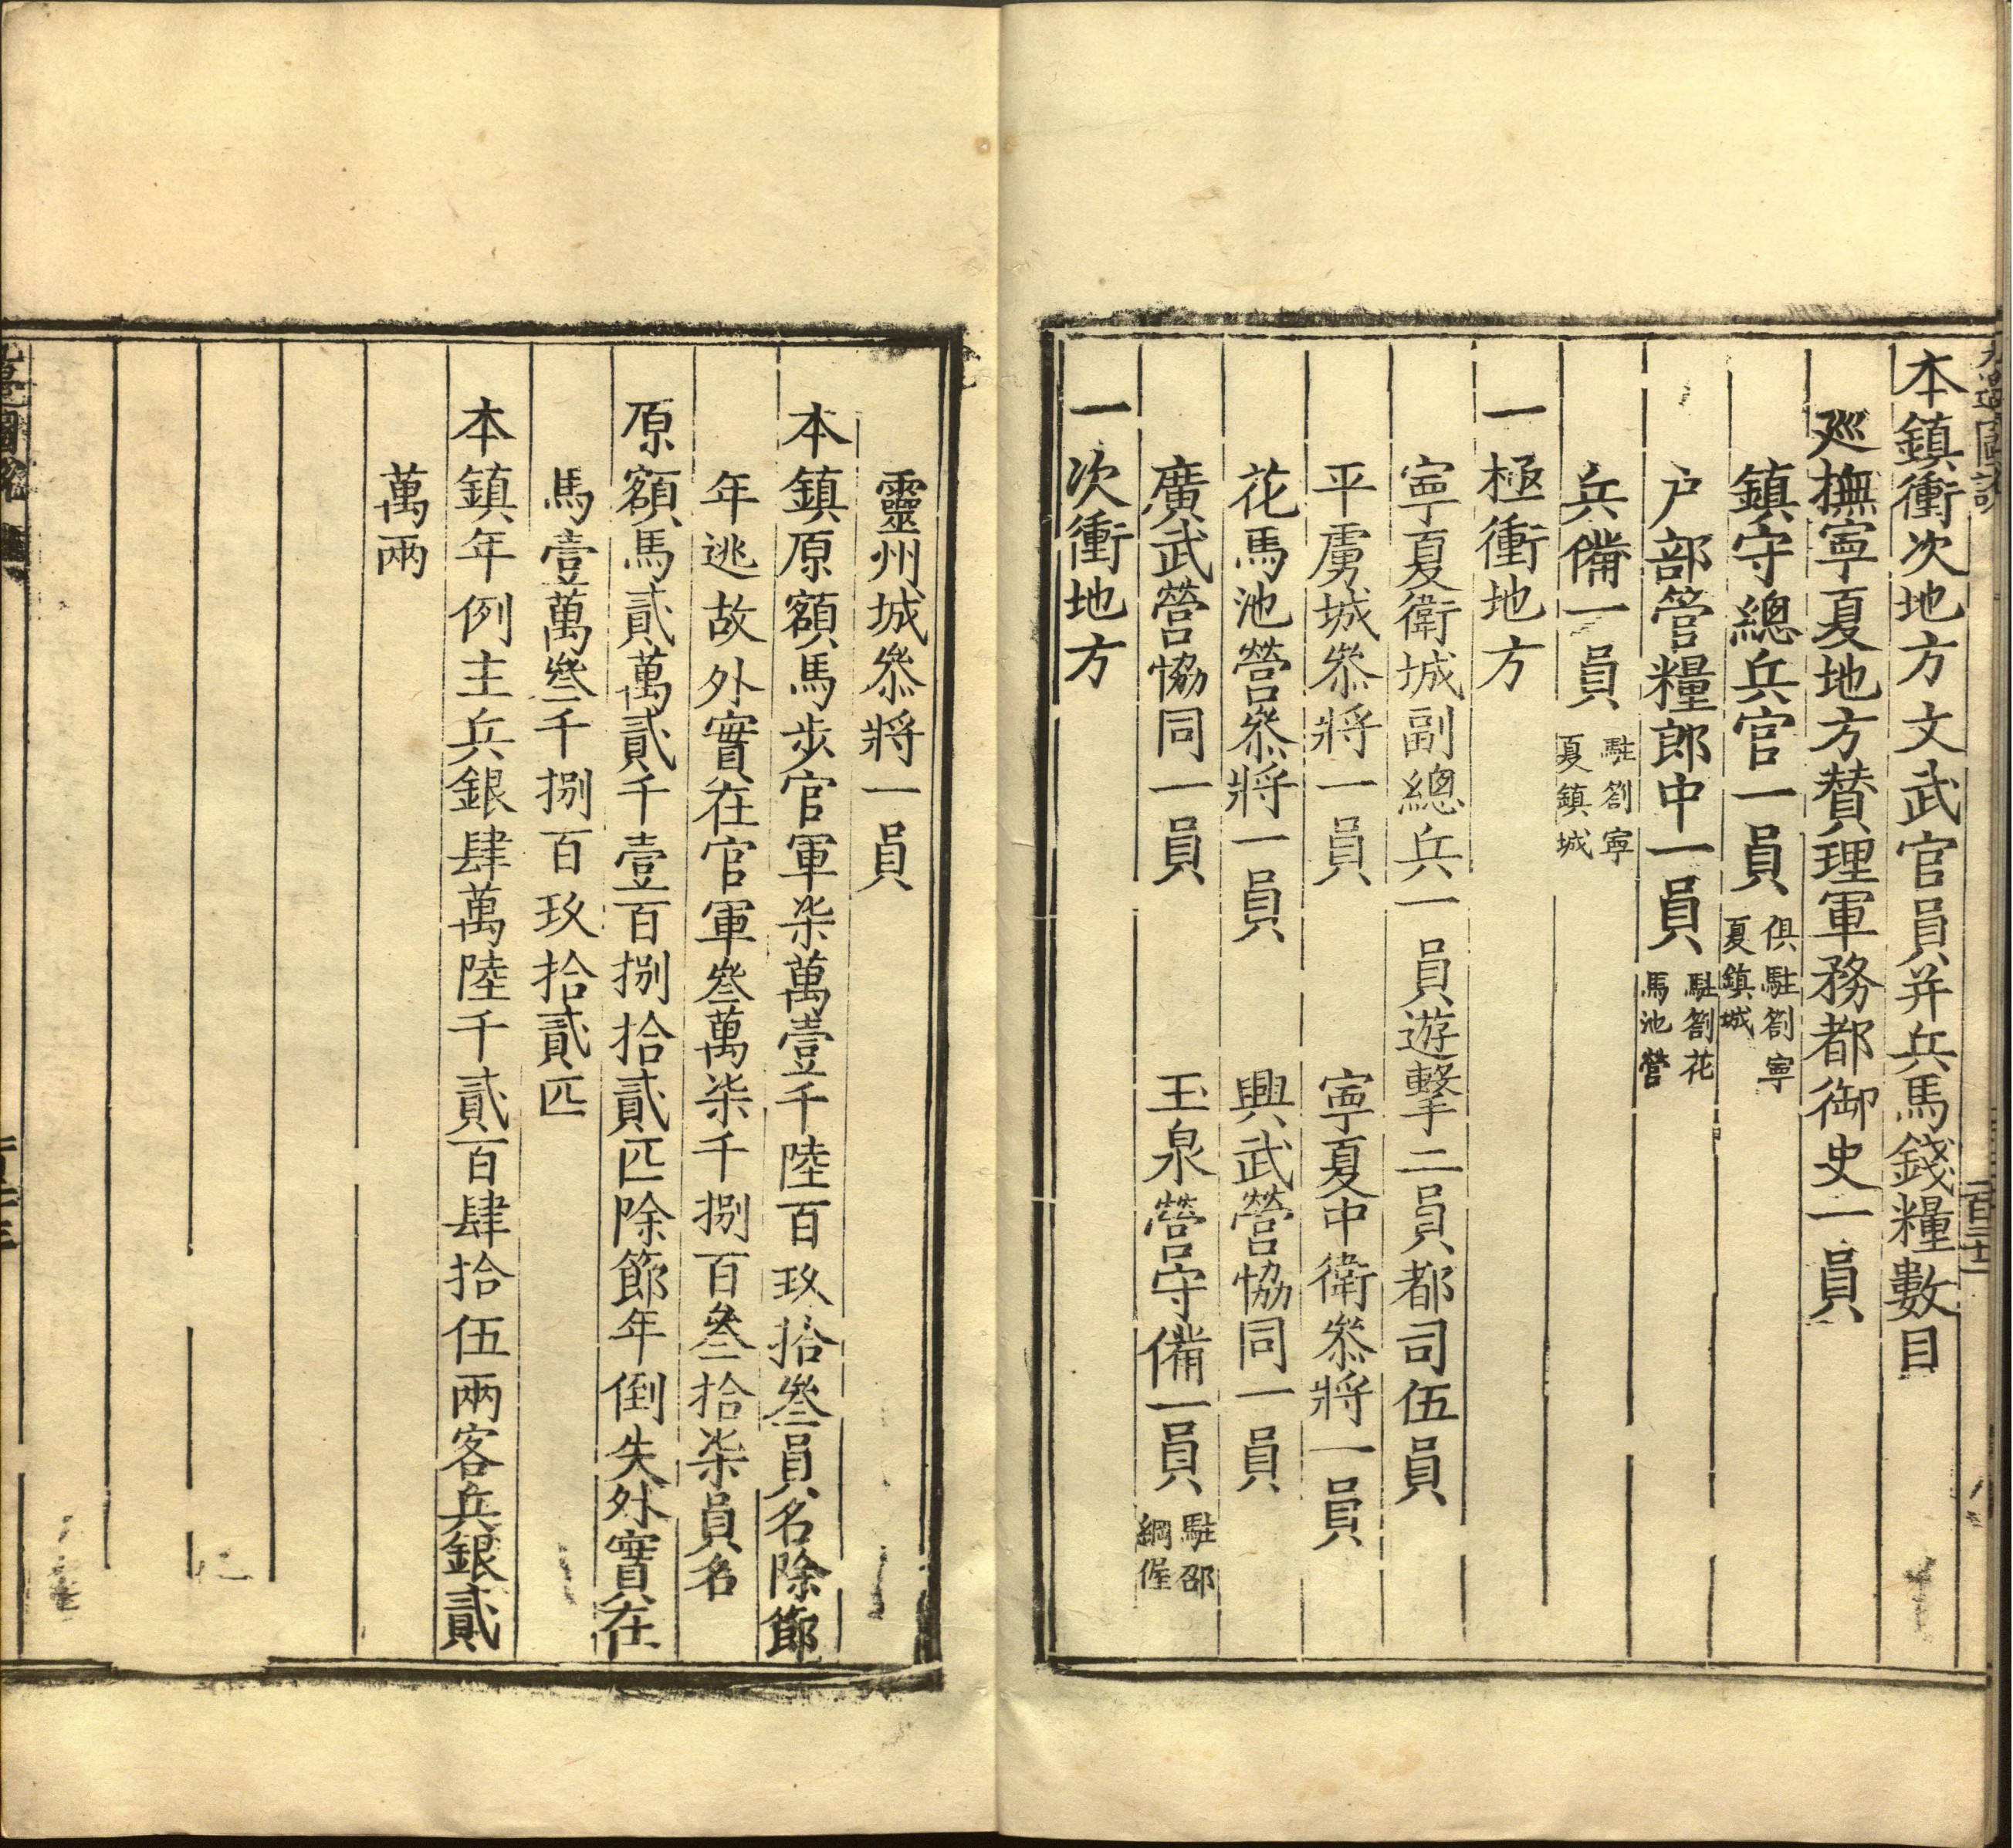 本鎮衝次地方文武官員并兵馬錢糧數目
巡撫寧夏地方贊理軍務都御史一員
鎮守總兵官一員 俱駐劄寧
夏鎮城
户部管糧郎中一員 駐劄花
馬池營
兵備一員 駐劄寧
夏鎮城
一極衝地方
寧夏衛城副總兵一員遊擊二員都司伍員
平虜城叅將一員 寧夏中衛叅將一員
花馬池營叅將一員 興武營協同一員
廣武營協同一員 玉泉營守備一員 駐邵
綱偓
一次衝地方
靈州城叅將一員
本鎮原額馬步官軍柒萬壹千陸百玖拾叄員名除節
年逃故外實在官軍叄萬柒千捌百叄拾柒員名
原額馬貳萬貳千壹百捌拾貳匹除節年倒失外實在
馬壹萬叄千捌百玖拾貳匹
本鎮年例主兵銀肆萬陸千貳百肆拾伍兩客兵銀貳
萬兩